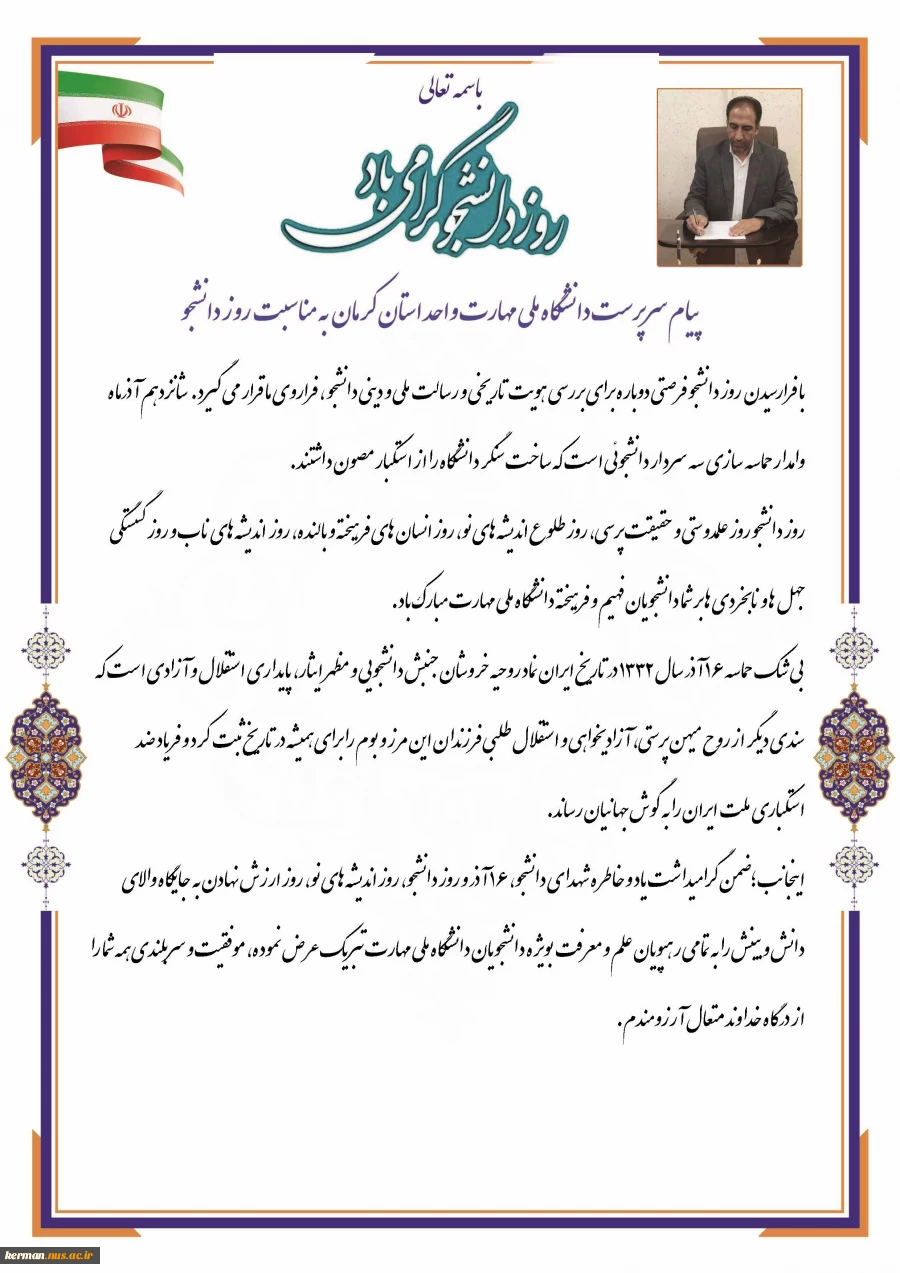 باسمه تعالی
روز دانشجو گرامی باد
پیام سرپرست دانشگاه ملی مهارت واحد استان کرمان به مناسبت روز دانشجو
با فرارسیدن روز دانشجو فرصتی دوباره برای بررسی هویت تاریخی و رسالت ملی و دینی دانشجو، فراروی ما قرار می گیرد. شانزدهم آذرماه
وامدار حماسه سازی سه سردار دانشجوئی است که ساخت سنگر دانشگاه را از استکبار مصون داشتند.
روز دانشجو روز علمدوستی و حقیقت پرسی، روز طلوع اندیشه های نو، روز انسان های فرهیخته و بالنده، روز اندیشه های ناب و روز گسستگی
جهل ها و نابخردی ها بر شما دانشجویان فهیم و فرهیختة دانشگاه ملی مهارت مبارک باد.
بی شک حماسه ۱۶آذر سال ۱۳۳۲در تاریخ ایران نماد روحیه خروشان جنبش دانشجویی و مظهر ایثار، پایداری استقلال و آزادی است که
سندی دیگر از روح میهن پرستی، آزادیخواهی و استقلال طلبی فرزندان این مرز و بوم را برای همیشه در تاریخ ثبت کرد و فریاد ضد
استکباری ملت ایران را به گوش جهانیان رساند.
اینجانب؛ضمن گرامیداشت یاد و خاطره شهدای دانشجو، ۱۶آذر و روز دانشجو، روز اندیشه های نو، روز ارزش نهادن به جایگاه والای
دانش و بینش را به تمامی رهپویان علم و معرفت بویژه دانشجویان دانشگاه ملی مهارت تبریک عرض نموده، موفقیت و سربلندی همه شما را
از درگاه خداوند متعال آرزومندم.
kerman.nus.ac.ir